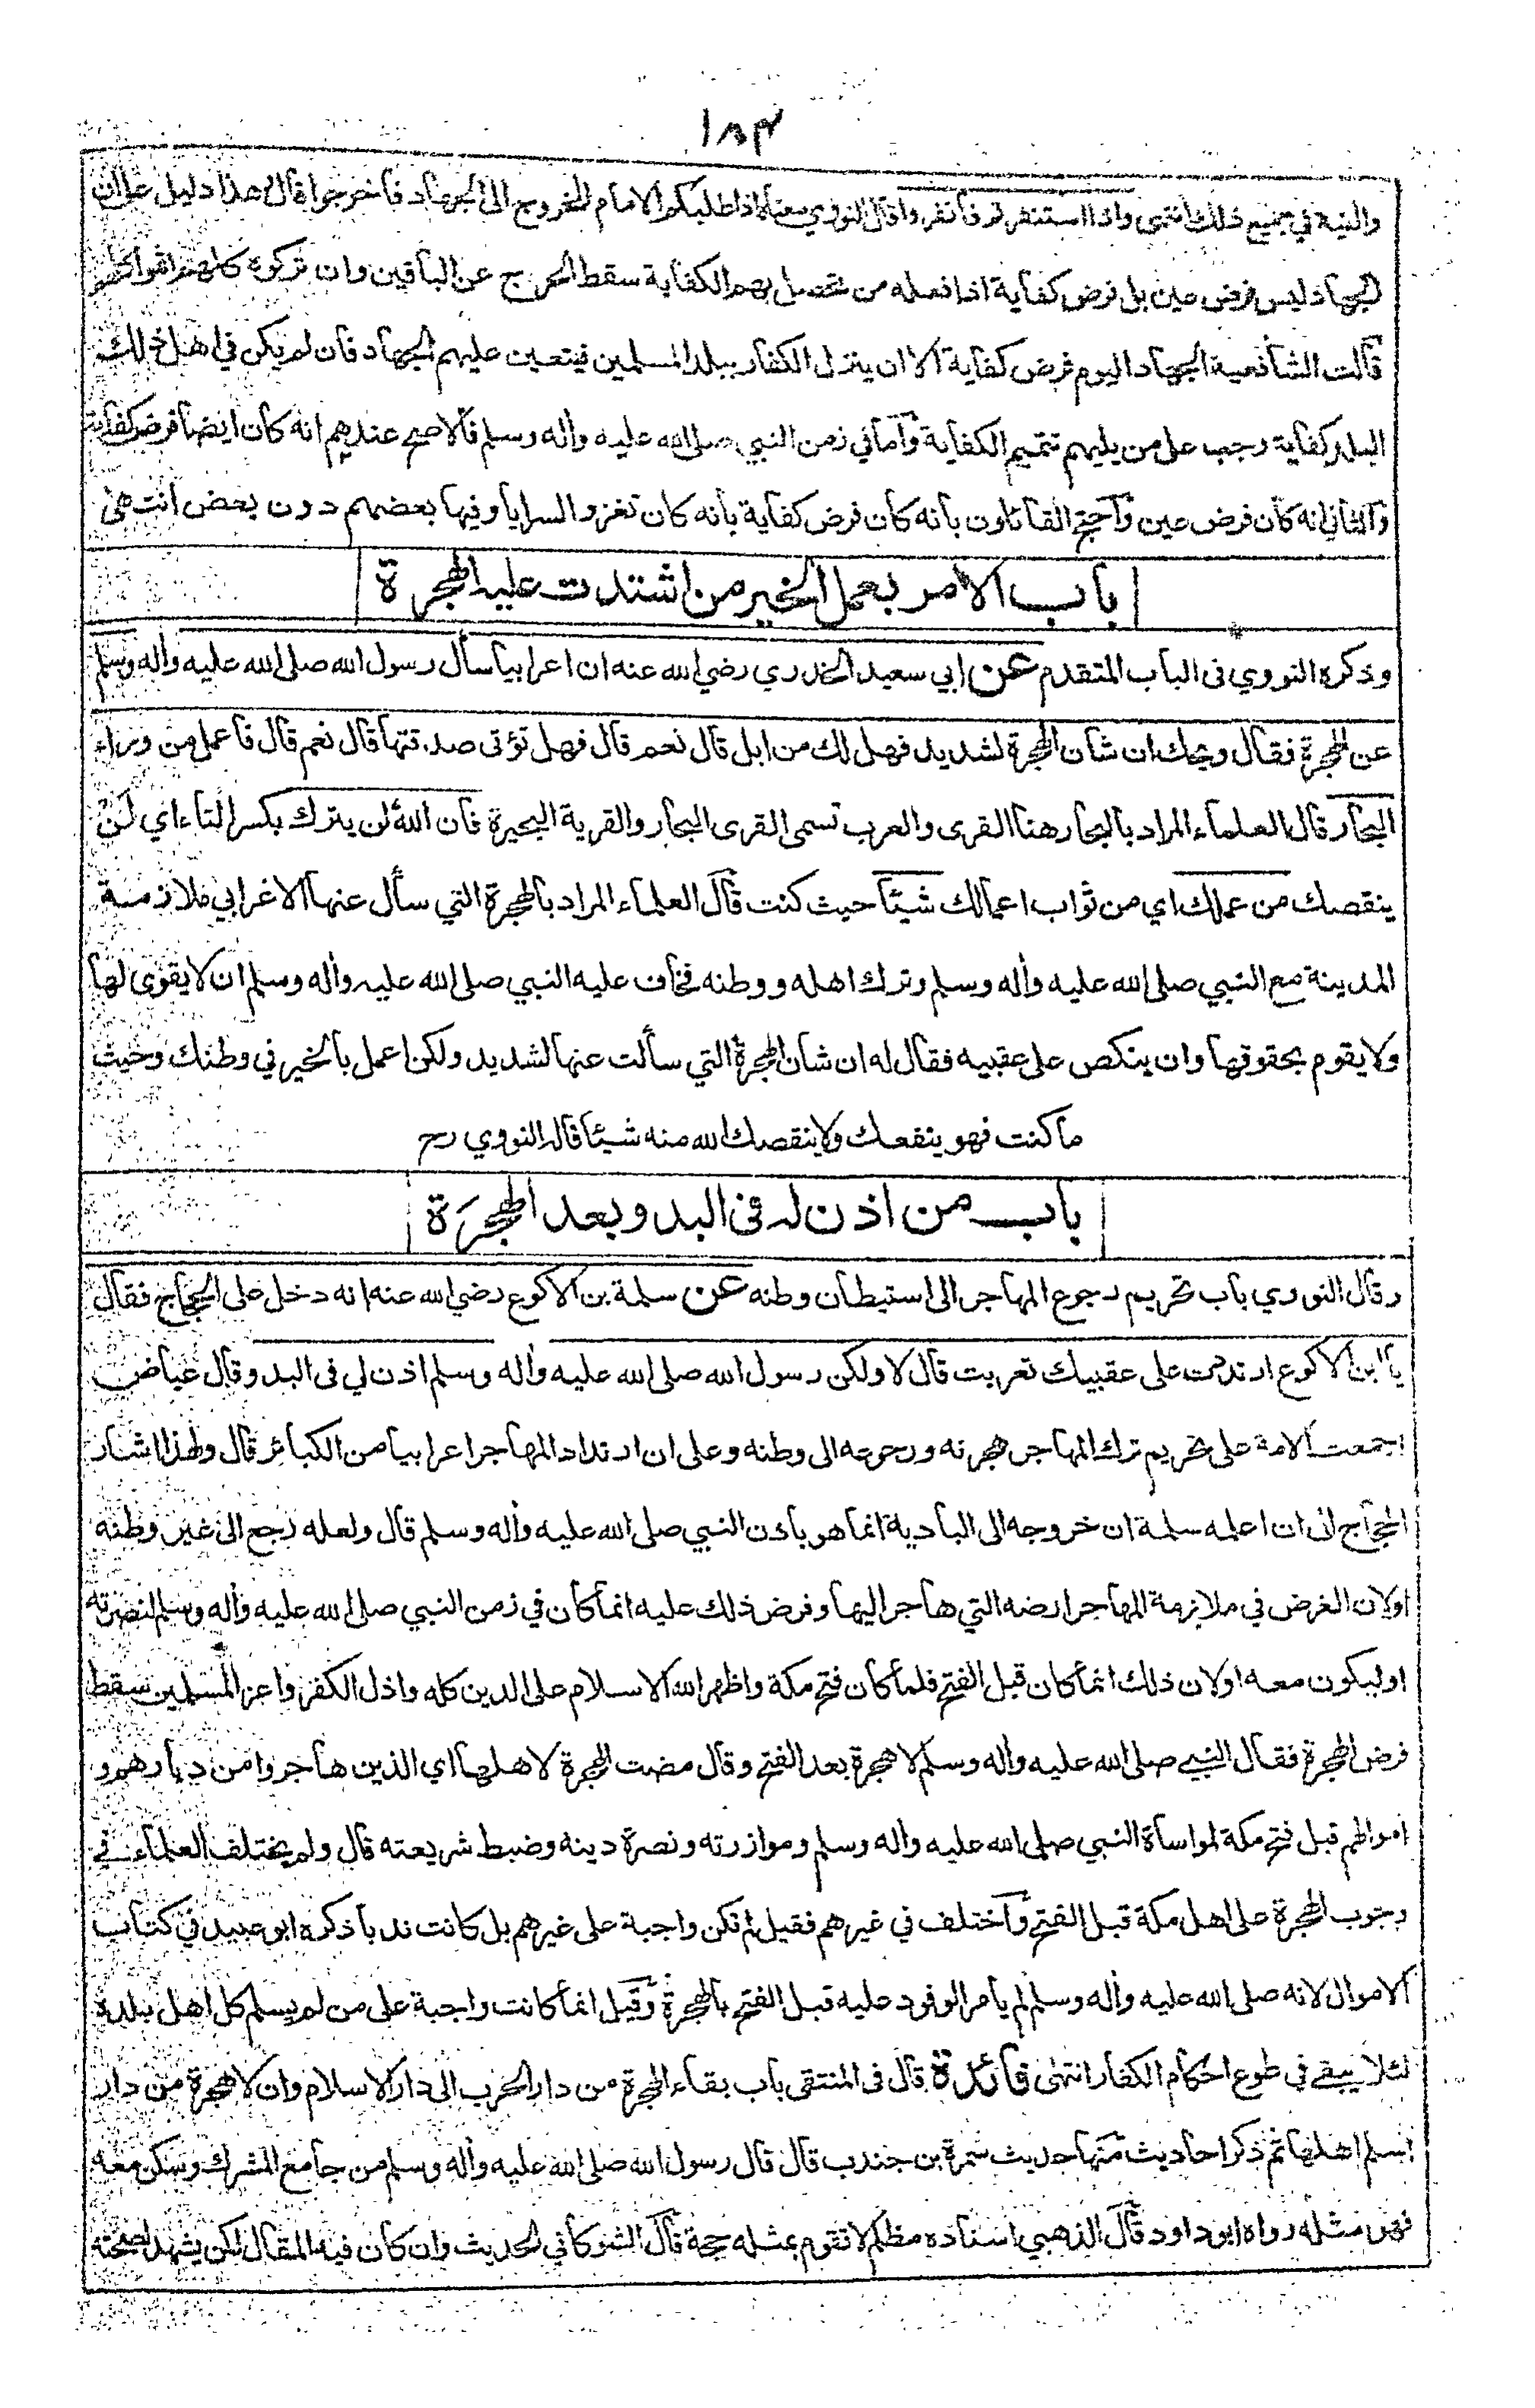 ١٨٣
والنية في جميع ذلك انتهى واذا استنفرتم فانفروا قال النووي معناه اذا طلبكم الامام للخروج الى الجهاد فاخرجوا قال هذا دليل على ان
الجهاد ليس فرض عين بل فرض كفاية اذا فعله من تحصل بهم الكفاية سقط الحرج عن الباقين وان تركوه كلهم اثموا كلهم
قالت الشافعية الجهاد اليوم فرض كفاية الا ان ينزل الكفار ببلد المسلمين فيتعين عليهم الجهاد فان لم يكن في اهل ذلك
البلد كفاية وجب على من يليهم تتميم الكفاية وأما في زمن النبي صلى الله عليه وأله وسلم فالاصح عندهم انه كان ايضا فرض كفاية
والثاني انه كان فرض عين وأحتج القائلون بانه كان فرض كفاية بانه كان تغزو السرايا وفيها بعضهم دون بعض انتهى
باب الامر بعمل الخير من اشتدت عليه الهجرة
وذكره النووي في الباب المتقدم عن ابي سعيد الخدري رضي الله عنه ان اعرابيا سأل رسول الله صلى الله عليه وأله وسلم
عن الهجرة فقال ويحك ان شان الهجرة لشديد فهل لك من ابل قال نعم قال فهل تؤتى صدقتها قال نعم قال فاعمل من وراء
البحار قال العلماء المراد بالبحار هنا القرى والعرب تسمى القرى البحار والقرية البحيرة فان الله لن يترك بكسر التاء اي لن
ينقصك من عملك اي من ثواب اعمالك شيئا حيث كنت قال العلماء المراد بالهجرة التي سأل عنها الاعرابي ملازمة
المدينة مع النبي صلى الله عليه وأله وسلم وترك اهله ووطنه فخاف عليه النبي صلى الله عليه وأله وسلم ان لا يقوى لها
ولا يقوم بحقوقها وان ينكص على عقبيه فقال له ان شان الهجرة التي سألت عنها لشديد ولكن اعمل بالخير في وطنك وحيث
ما كنت فهو ينفعك ولا ينقصك الله منه شيئا قاله النووي رح
باب من اذن له في البدو بعد الهجرة
وقال النووي باب تحريم رجوع المهاجر الى استيطان وطنه عن سلمة بن الاكوع رضي الله عنه انه دخل على الحجاج فقال
يا ابن الاكوع ارتددت على عقبيك تعربت قال لا ولكن رسول الله صلى الله عليه وأله وسلم اذن لي في البدو قال عياض
اجمعت الامة على تحريم ترك المهاجر هجرته ورجوعه الى وطنه وعلى ان ارتداد المهاجر اعرابيا من الكبائر قال ولهذا اشار
الحجاج الى ان اعلمه سلمة ان خروجه الى البادية انما هو باذن النبي صلى الله عليه وأله وسلم قال ولعله رجع الى غير وطنه
اولان الغرض في ملازمة المهاجر ارضه التي هاجر اليها وفرض ذلك عليه انما كان في زمن النبي صلى الله عليه وأله وسلم لنصرته
او ليكون معه اولان ذلك انما كان قبل الفتح فلما كان فتح مكة واظهر الله الاسلام على الدين كله واذل الكفر واعز المسلمين سقط
فرض الهجرة فقال النبي صلى الله عليه وأله وسلم لا هجرة بعد الفتح وقال مضت الهجرة لاهلها اي الذين هاجروا من ديارهم و
اموالهم قبل فتح مكة لمواساة النبي صلى الله عليه واله وسلم وموازرته ونصرة دينه وضبط شريعته قال ولم يختلف العلماء في
وجوب الهجرة على اهل مكة قبل الفتح وأختلف في غيرهم فقيل لم تكن واجبة على غيرهم بل كانت ندبا ذكره ابو عبيد في كتاب
الاموال لانه صلى الله عليه وأله وسلم لم يأمر الوفود عليه قبل الفتح بالهجرة وقيل انما كانت واجبة على من لم يسلم كل اهل بلده
لئلا يبقى في طوع احكام الكفار انتهى فائدة قال في المنتقى باب بقاء الهجرة من دار الحرب الى دار الاسلام وان لا هجرة من دار
اسلم اهلها ثم ذكر احاديث منها حديث سمرة بن جندب قال قال رسول الله صلى الله عليه وأله وسلم من جامع المشرك وسكن معه
فهو مثله رواه ابو داود قال الذهبي اسناده مظلم لا تقوم بمثله حجة قال الشوكاني الحديث وان كان فيه المقال لكن يشهد لصحته